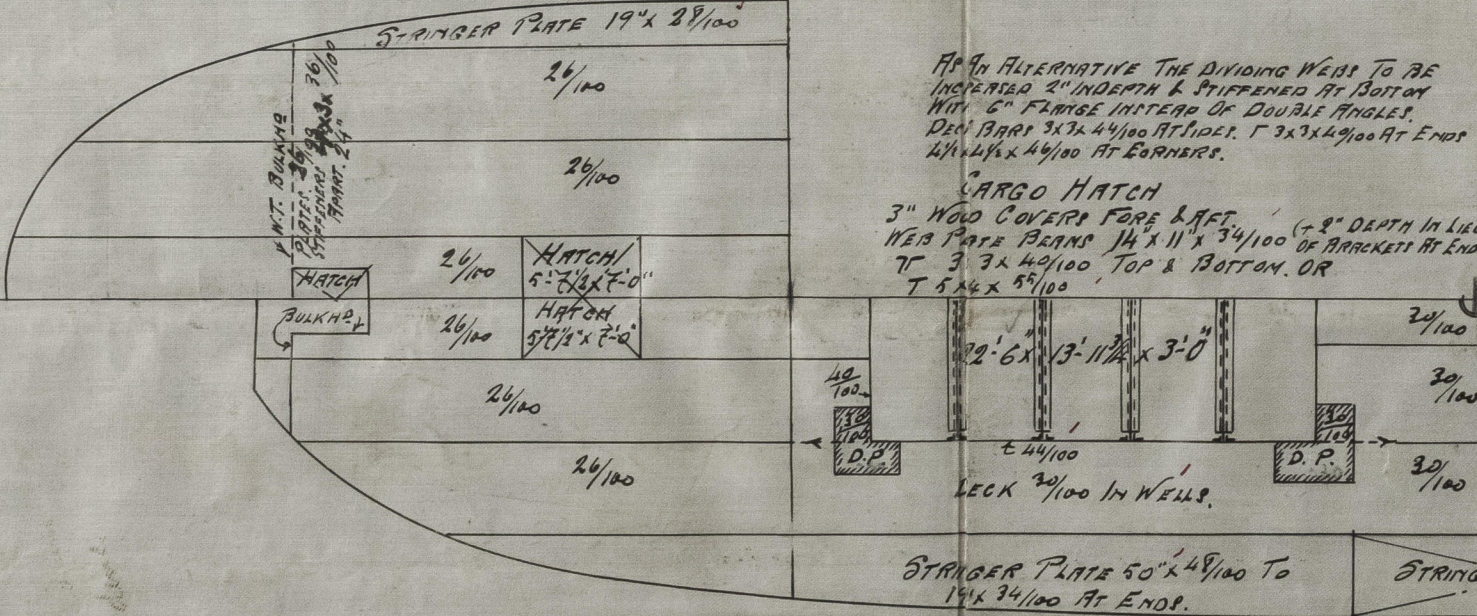 STRINGER PLATE 19" X 28/100
26/100
26/100
W.T. BULKHD
PLATES
STIFFENERS 3 X 36/100
APART. 24"
26/100
HATCH
5'-7 1/2 X 7'-0"
HATCH
BULKHD
26/100
HATCH
5'7 1/2" X 7'-0"
26/100
26/100
AS AN ALTERNATIVE THE DIVIDING WEBS TO BE
INCREASED 2" IN DEPTH & STIFFENED AT BOTTOM
WITH 6" FLANGE INSTEAD OF DOUBLE ANGLES.
DECK BARS 3X3X 44/100 AT SIDES. Γ 3X3X40/100 AT ENDS
4 1/2 X 4 1/2 X 46/100 AT CORNERS.
CARGO HATCH
3" WOOD COVERS FORE & AFT.
WEB PATE BEAMS 14" X 11" X 34/100 (+2" DEPTH IN LIEU
OF BRACKETS AT END
3 3 X 40/100 TOP & BOTTOM. OR
T 5 X 4 X 55/100
22'-6" X 13'-11 3/4 X 3'-0"
40/100
36/100
D.P.
t 44/100
36/100
D.P.
DECK 30/100 IN WELLS.
30/100
30/100
30/100
STRINGER PLATE 50" X 48/100 TO
19" X 34/100 AT ENDS.
STRING